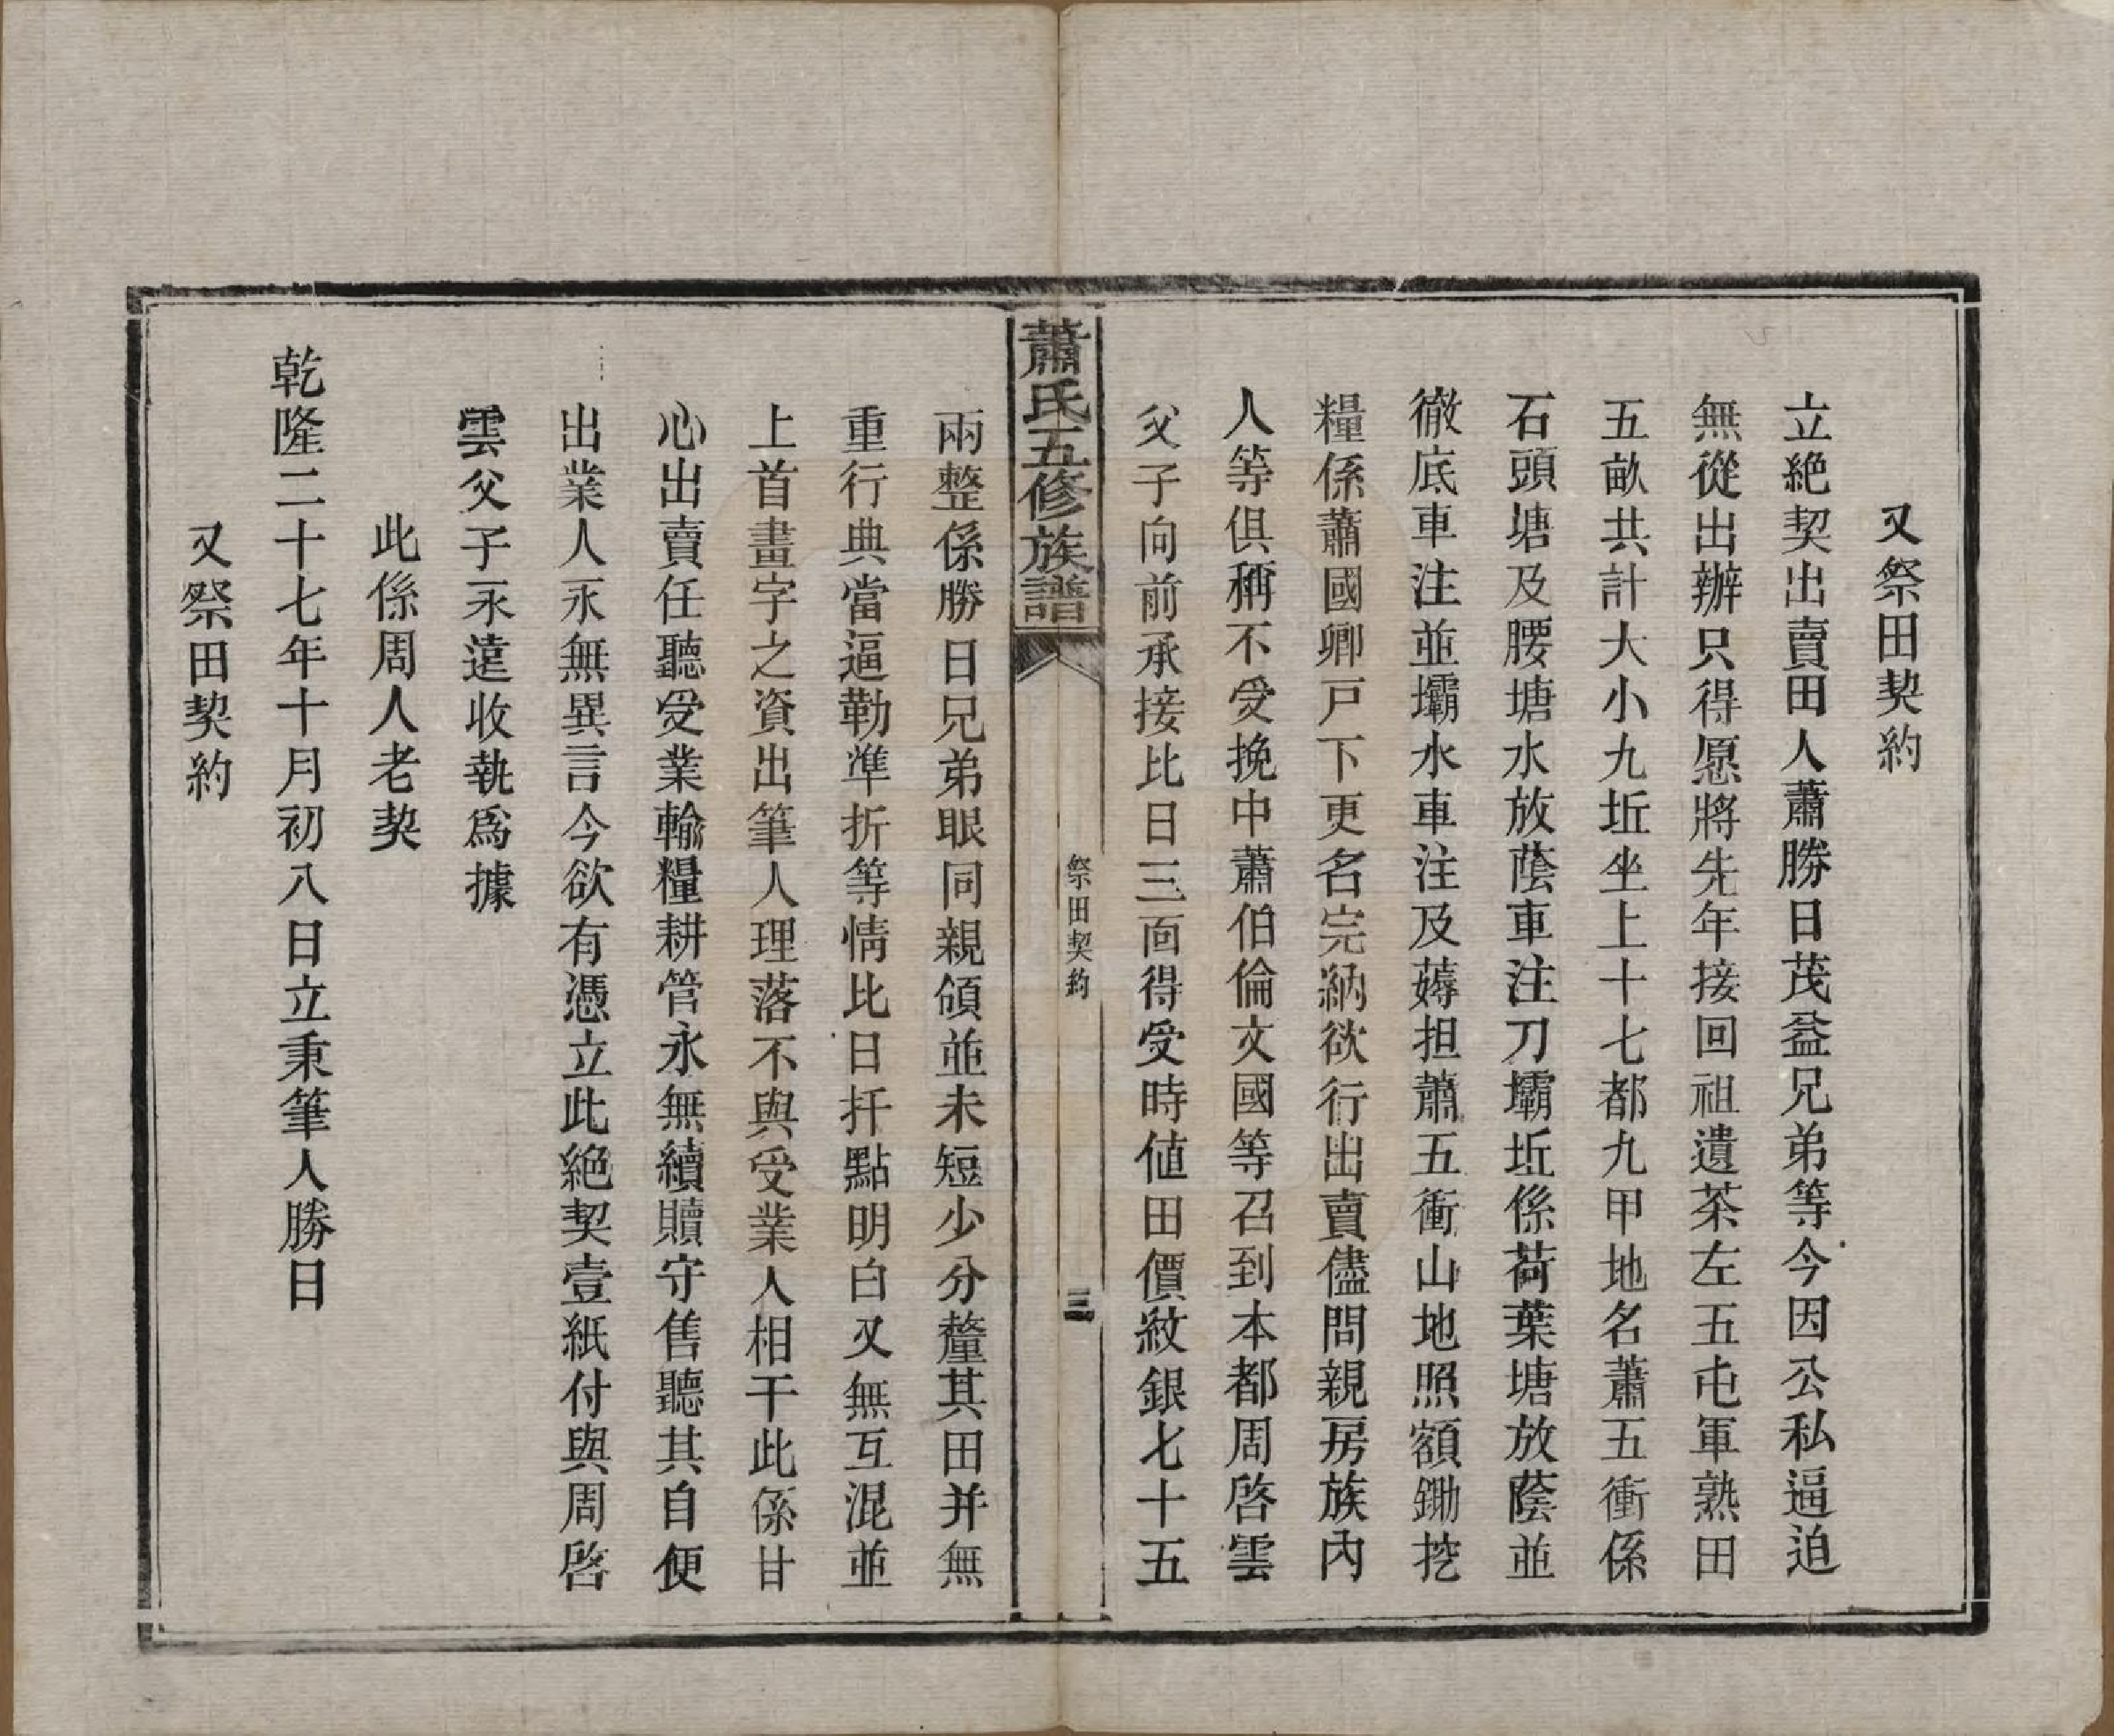 又祭田契約
立絶契出賣田人蕭勝日茂益兄弟等今因公私逼迫
無從出辦只得愿將先年接回祖遺茶左五屯軍熟田
五畝共計大小九坵坐上十七都九甲地名蕭五衝係
石頭塘及腰塘水放蔭車注刀壩坵係荷葉塘放蔭並
徹底車注並壩水車注及薅担蕭五衝山地照額鋤挖
糧係蕭國卿戸下更名完納欲行出賣儘問親房族內
人等俱稱不受挽中蕭伯倫文國等召到本都周啓雲
父子向前承接比日三面得受時値田價紋銀七十五
蕭氏五修族譜
祭田契約
三
兩整係勝日兄弟眼同親領並未短少分釐其田并無
重行典當逼勒準折等情比日扦點明白又無互混並
上首畫字之資出筆人理落不與受業人相干此係甘
心出賣任聽受業輸糧耕管永無續贖守售聽其自便
出業人永無異言今欲有憑立此絕契壹紙付與周啓
雲父子永遠收執爲據
此係周人老契
乾隆二十七年十月初八日立秉筆人勝日
又祭田契約